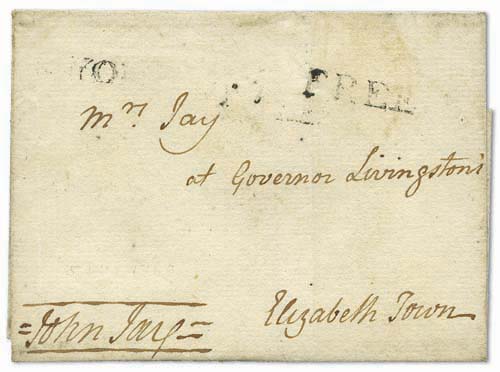 FREE
Mrs Jay
at Governor Livingston's
=John Jay=
Elizabeth Town